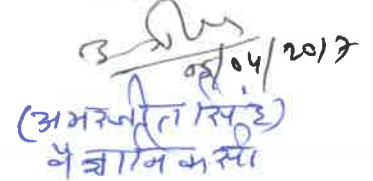 /04/2017
(अमरजीत सिंह)
वैज्ञानिक सी